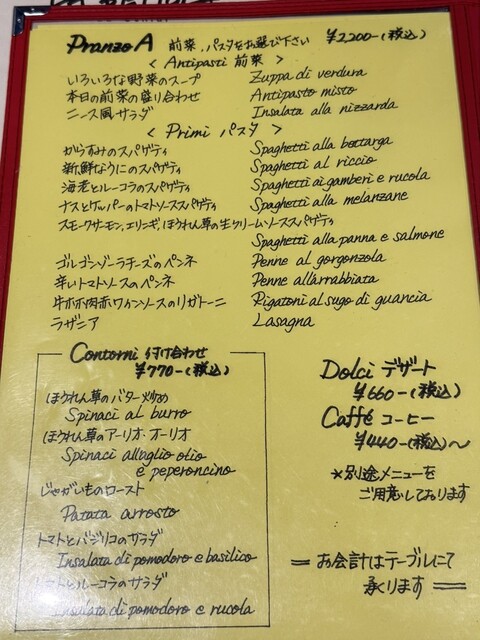 Pranzo A 前菜、パスタをお選び下さい ¥2,200-(税込)
< Antipasti 前菜 >
いろいろな野菜のスープ Zuppa di verdura
本日の前菜の盛り合わせ Antipasto misto
ニース風サラダ Insalata alla nizzarda
< Primi パスタ >
からすみのスパゲティ Spaghetti alla bottarga
新鮮なうにのスパゲティ Spaghetti al riccio
海老とルーコラのスパゲティ Spaghetti ai gamberi e rucola
ナスとケッパーのトマトソーススパゲティ Spaghetti alla melanzane
スモークサーモン、エリンギ、ほうれん草の生クリームソーススパゲティ
Spaghetti alla panna e salmone
ゴルゴンゾーラチーズのペンネ Penne al gorgonzola
辛いトマトソースのペンネ Penne all'arrabbiata
牛ホホ肉赤ワインソースのリガトーニ Rigatoni al sugo di guancia
ラザニア Lasagna
Contorni 付け合わせ
¥770-(税込)
ほうれん草のバター炒め
Spinaci al burro
ほうれん草のアーリオ・オーリオ
Spinaci all'aglio olio
e peperoncino
じゃがいものロースト
Patata arrosto
トマトとバジリコのサラダ
Insalata di pomodoro e basilico
トとルーコラのサラダ
Insalata di pomodoro e rucola
Dolci デザート
¥660-(税込)
Caffé コーヒー
¥440-(税込)〜
*別途メニューを
ご用意しております
= お会計はテーブルにて
承ります =